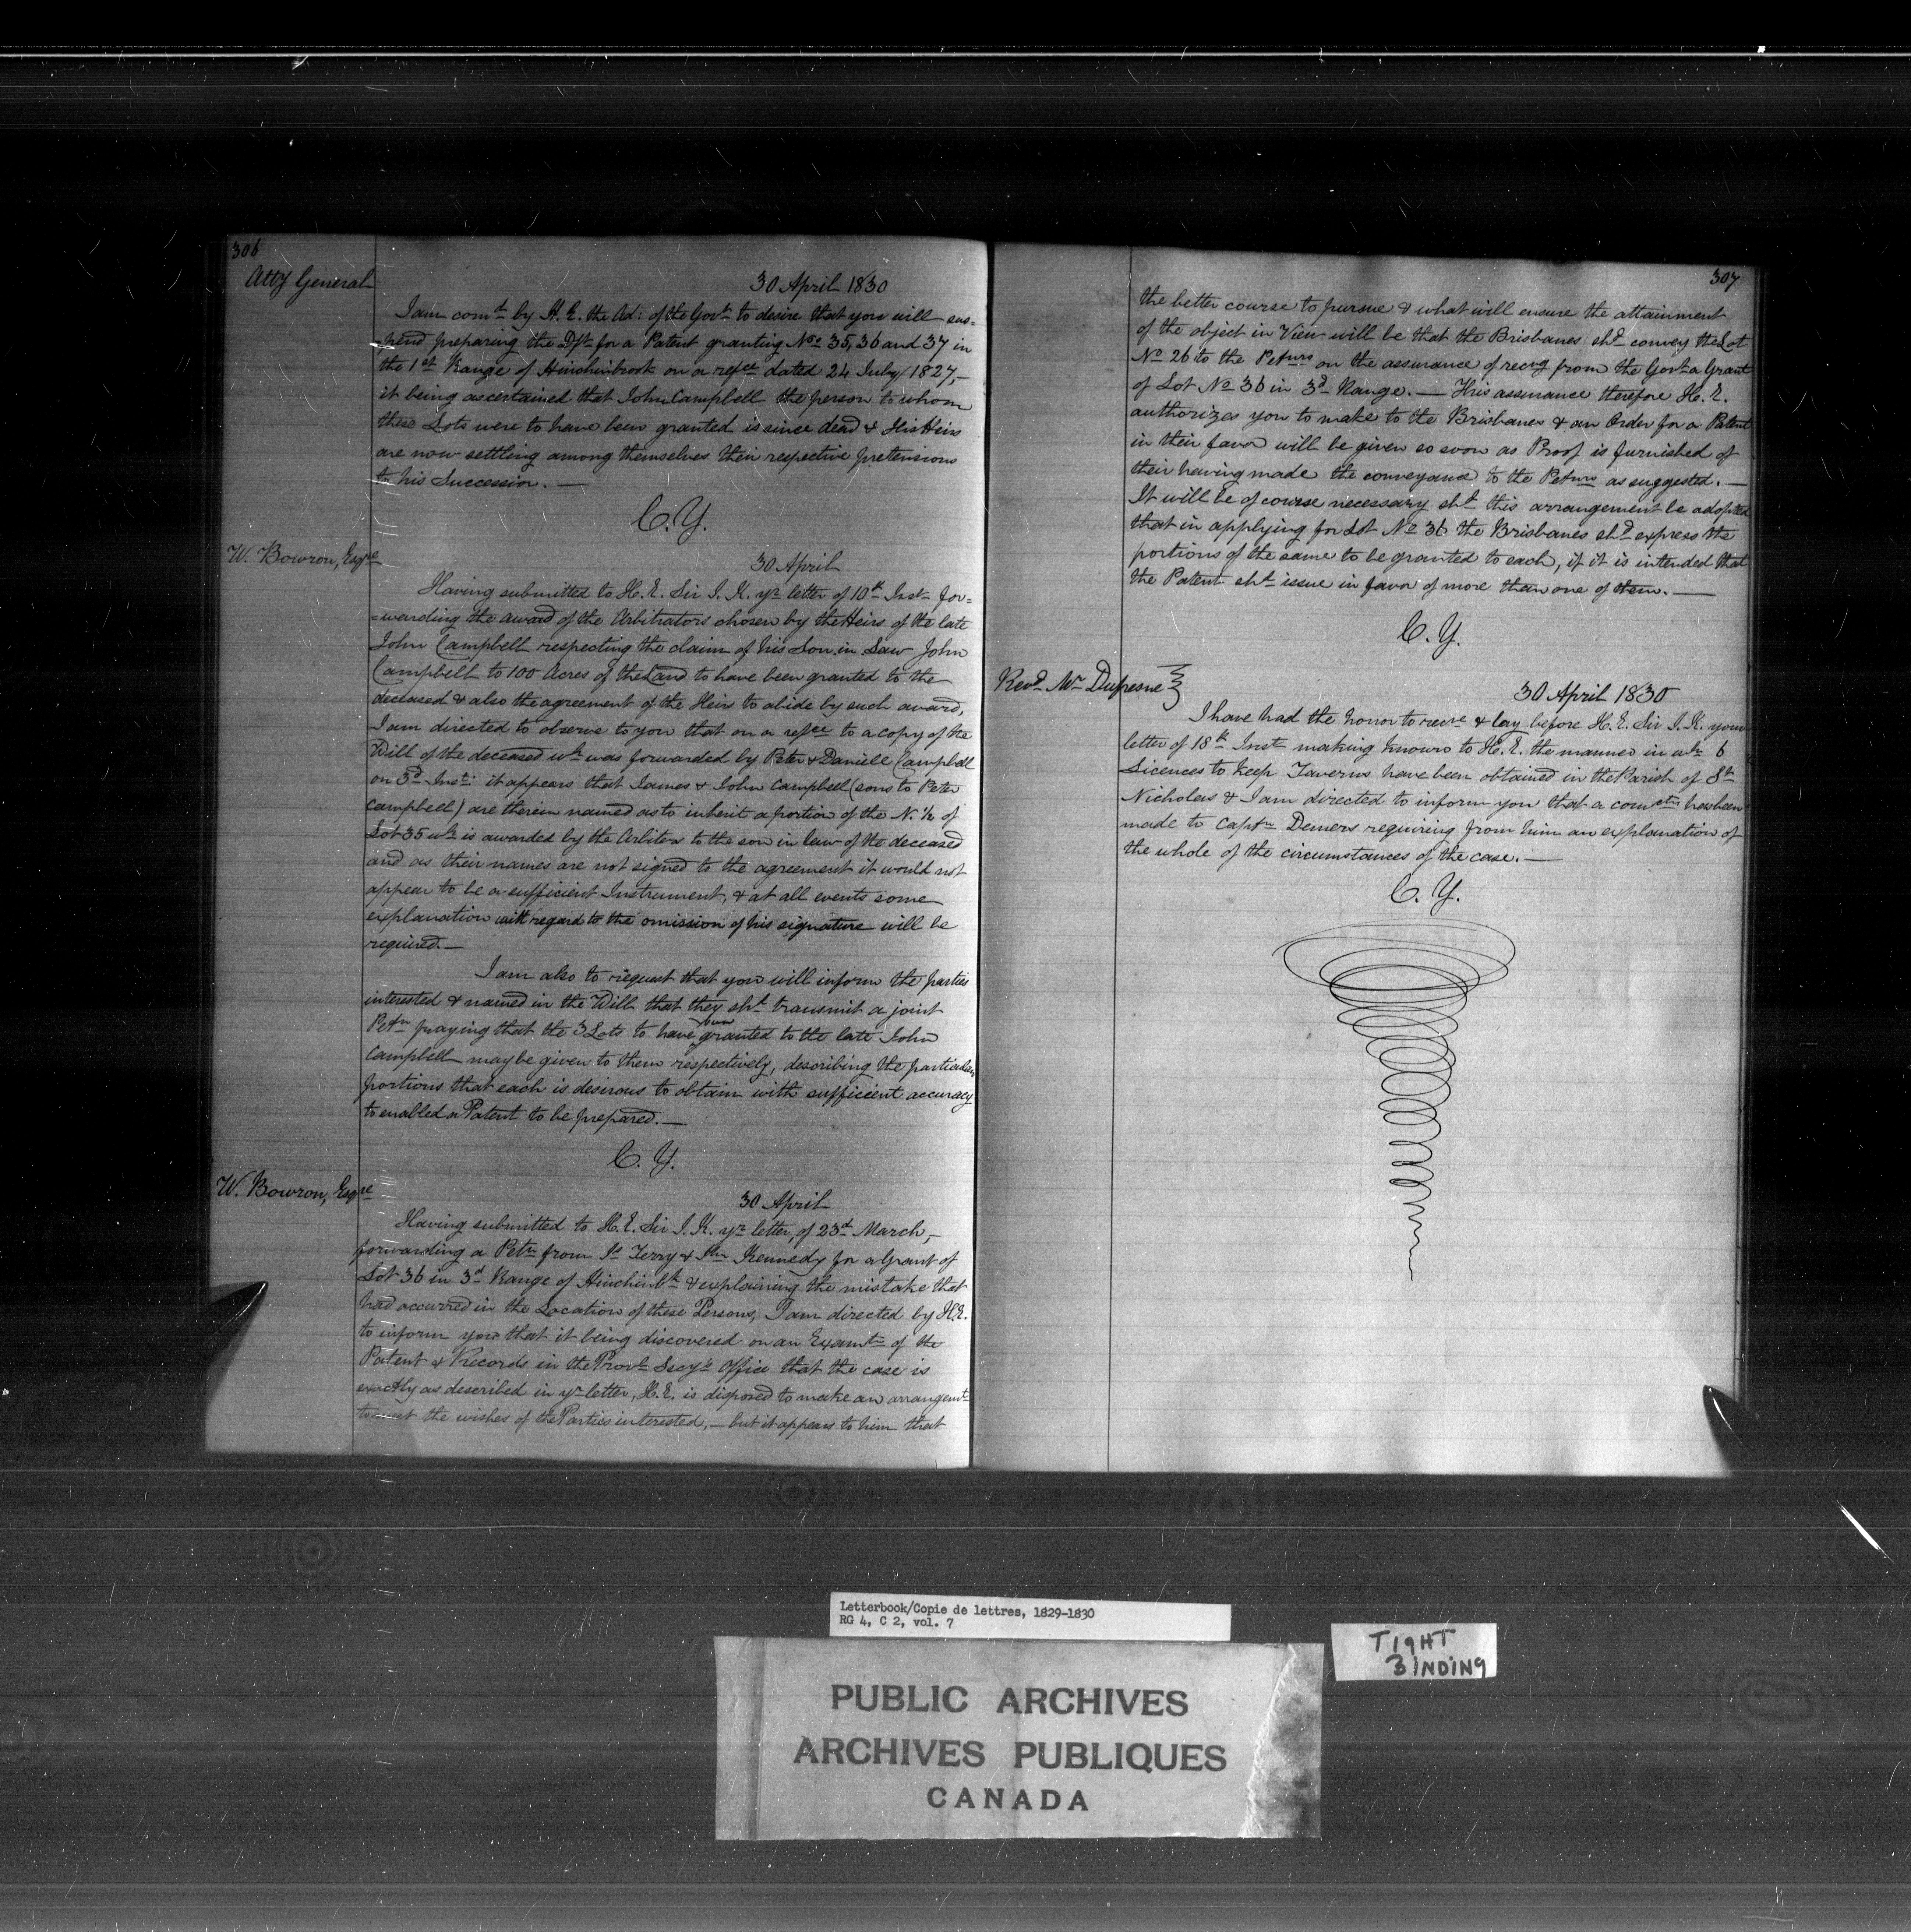 306
Atty General
30 April 1830
I am comd by H. E. the Ad: of the Govt to desire that you will sus=
pend preparing the Dft for a Patent granting Nos 35, 36 and 37 in
the 1st Range of Hinchinbrook on a refce dated 24 July 1827,—
it being ascertained that John Campbell the person to whom
these Lots were to have been granted is since dead & His Heirs
are now settling among themselves their respective pretensions
to his Succession. —
C. Y.
W. Bowron, Esqre
30 April
Having submitted to H. E. Sir J. K. yr letter of 10th Inst for=
=warding the award of the Arbitrators chosen by the Heirs of the late
John Campbell respecting the claim of his Son in Law John
Campbell to 100 Acres of the Land to have been granted to the
deceased & also the agreement of the Heirs to abide by such award,
I am directed to observe to you that on a refce to a copy of the
Will of the deceased wh was forwarded by Peter & Daniell Campbell
on 3d Inst: it appears that James & John Campbell (sons to Peter
Campbell) are therein named as to inherit a portion of the N. 1/2 of
Lot 35 wh is awarded by the Arbiters to the son in law of the deceased
and as their names are not signed to the agreement it would not
appear to be a sufficient Instrument, & at all events some
explanation with regard to the omission of his signature will be
required. —
I am also to request that you will inform the parties
interested & named in the Will that they shd transmit a joint
Petn praying that the 3 Lots to have been granted to the late John
Campbell may be given to them respectively, describing the particular
portions that each is desirous to obtain with sufficient accuracy
to enabled a Patent to be prepared. —
C. Y.
W. Bowron, Esqre
30 April
Having submitted to H. E. Sir J. K. yr letter, of 23d March,—
forwarding a Petn from Js Terry & Kennedy for a Grant of
Lot 36 in 3d Range of Hinchinbk & explaining the mistake that
had occurred in the Location of these Persons, I am directed by H.E.
to inform you that it being discovered on an Examtn of the
Patent & Records in the Provl Secy's Office that the case is
exactly as described in yr letter, H. E. is disposed to make an arrangemt
to meet the wishes of the Parties interested, — but it appears to him that
307
the better course to pursue & what will ensure the attainment
of the object in View will be that the Brisbanes shd convey the Lot
No 26 to the Petnrs on the assurance of recvg from the Govt a Grant
of Lot No 36 in 3d Range. — This assurance therefore H. E.
authorizes you to make to the Brisbanes & an Order for a Patent
in their favor will be given so soon as Proof is furnished of
their having made the conveyance to the Petnrs as suggested. —
It will be of course necessary shd this arrangement be adopted
that in applying for Lot No 36 the Brisbanes shd express the
portions of the same to be granted to each, if it is intended that
the Patent shd issue in favor of more than one of them. —
C. Y.
Revd Mr Dufresne
30 April 1830
I have had the honor to recve & lay before H. E. Sir J. K. your
letter of 18th Inst making known to H. E. the manner in wh 6
Licences to keep Taverns have been obtained in the Parish of St
Nicholas & I am directed to inform you that a comctn has been
made to Captn Demers requiring from him an explanation of
the whole of the circumstances of the case. —
C. Y.
Letterbook/Copie de lettres, 1829-1830
RG 4, C 2, vol. 7
TIGHT
BINDING
PUBLIC ARCHIVES
ARCHIVES PUBLIQUES
CANADA